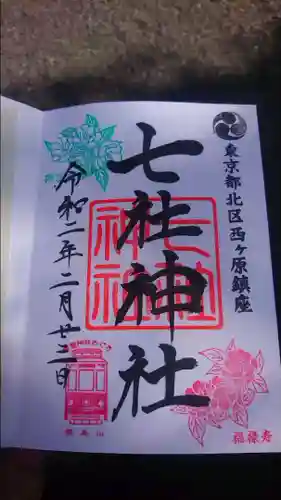 東京都北区西ヶ原鎮座
七社神社
七社
神社
令和二年二月廿三日
福禄寿
飛鳥山